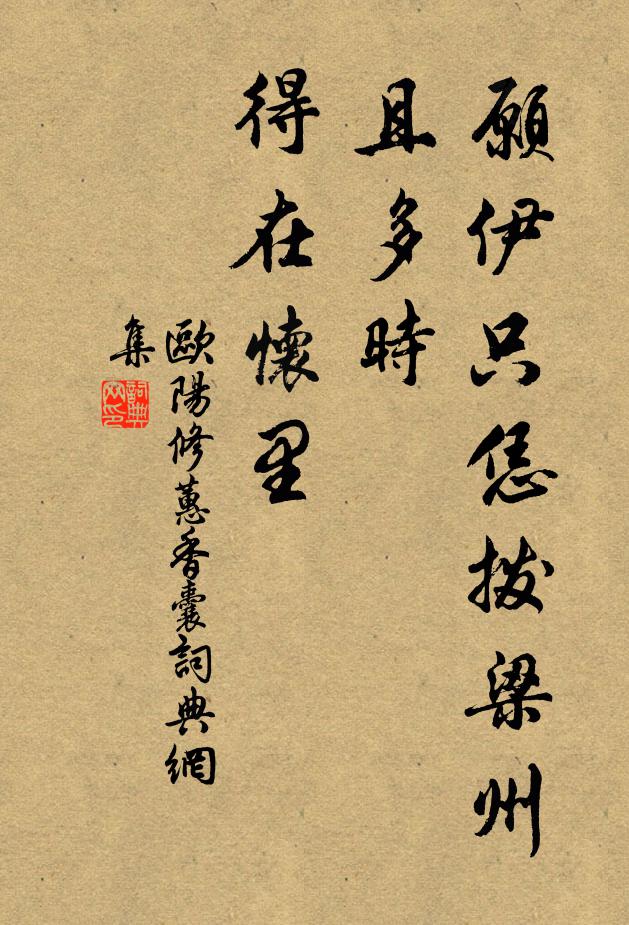 願伊只恁拨梁州
且多時
得在懷里
歐陽修蕙香囊詞典網
集
詞典网印